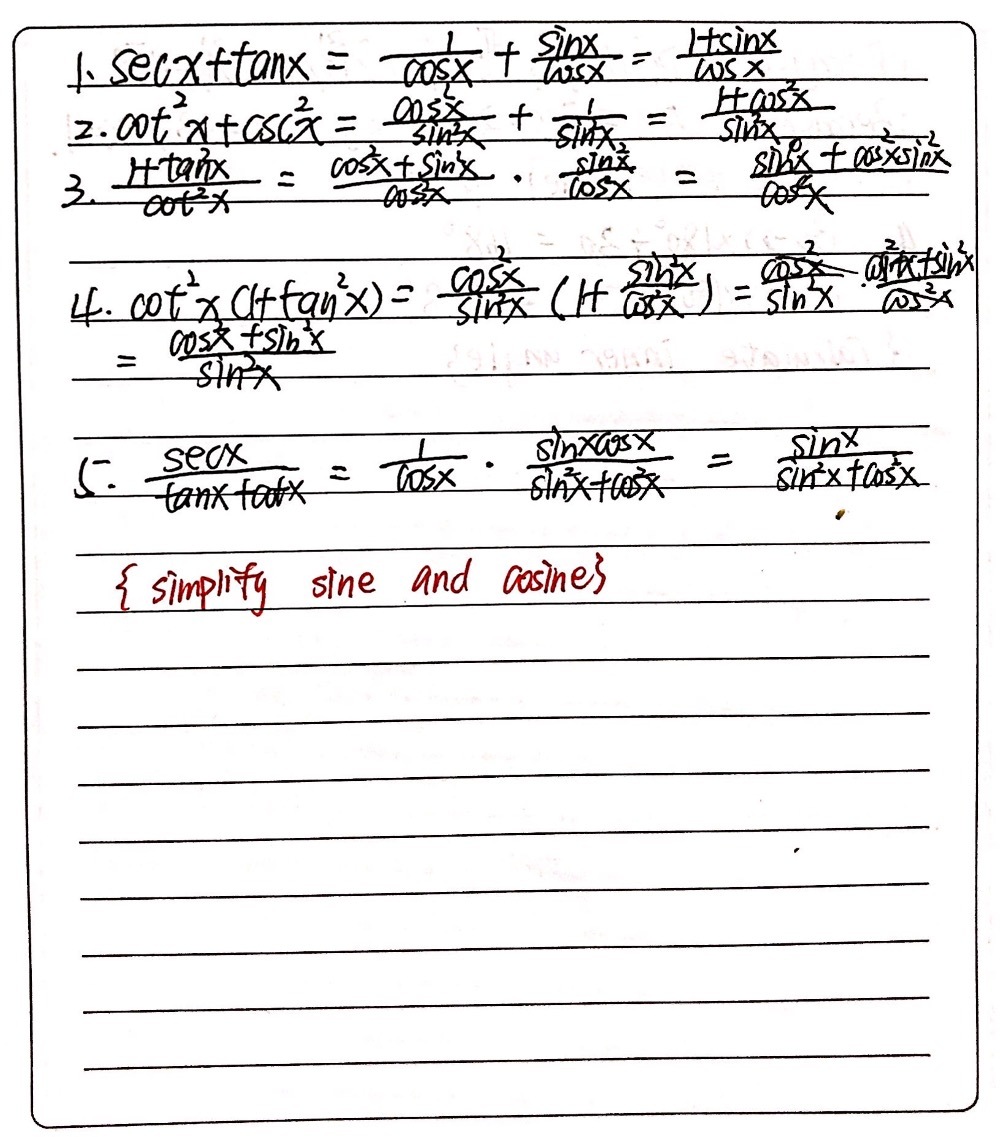 1. secx+tanx = 1/cosx + sinx/cosx = 1+sinx/cosx
2. cot²x+csc²x = cos²x/sin²x + 1/sin²x = 1+cos²x/sin²x
3. 1+tan²x/cot²x = cos²x+sin²x/cos²x · sin²x/cos²x = sin⁴x+cos²xsin²x/cos⁴x
4. cot²x(1+tan²x) = cos²x/sin²x (1+ sin²x/cos²x) = cos²x/sin²x · cos²x+sin²x/cos²x
= cos²x+sin²x/sin²x
5. secx/tanx+cotx = 1/cosx · sinxcosx/sin²x+cos²x = sinx/sin²x+cos²x
{ simplify sine and cosine}